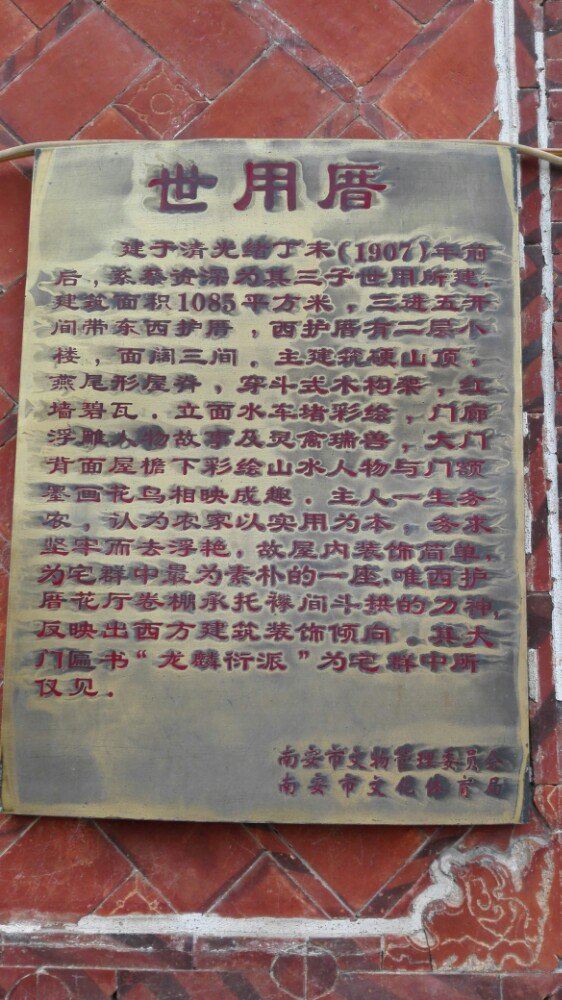 世用厝
建于清光绪丁未(1907)年前
后，系蔡资深为其三子世用所建。
建筑面积1085平方米，三进五开
间带东西护厝，西护厝有二层小
楼，面阔三间。主建筑硬山顶，
燕尾形屋脊，穿斗式木构架，红
墙碧瓦。立面水车堵彩绘，门廊
浮雕人物故事及灵禽瑞兽，大门
背面屋檐下彩绘山水人物与门额
墨画花鸟相映成趣。主人一生务
农，认为农家以实用为本，务求
坚牢而去浮艳，故屋内装饰简单，
为宅群中最为素朴的一座。唯西护
厝花厅卷棚承托襻间斗拱的力神，
反映出西方建筑装饰倾向。其大
门匾书“龙麟衍派”为宅群中所
仅见。
南安市文物管理委员会
南安市文化体育局